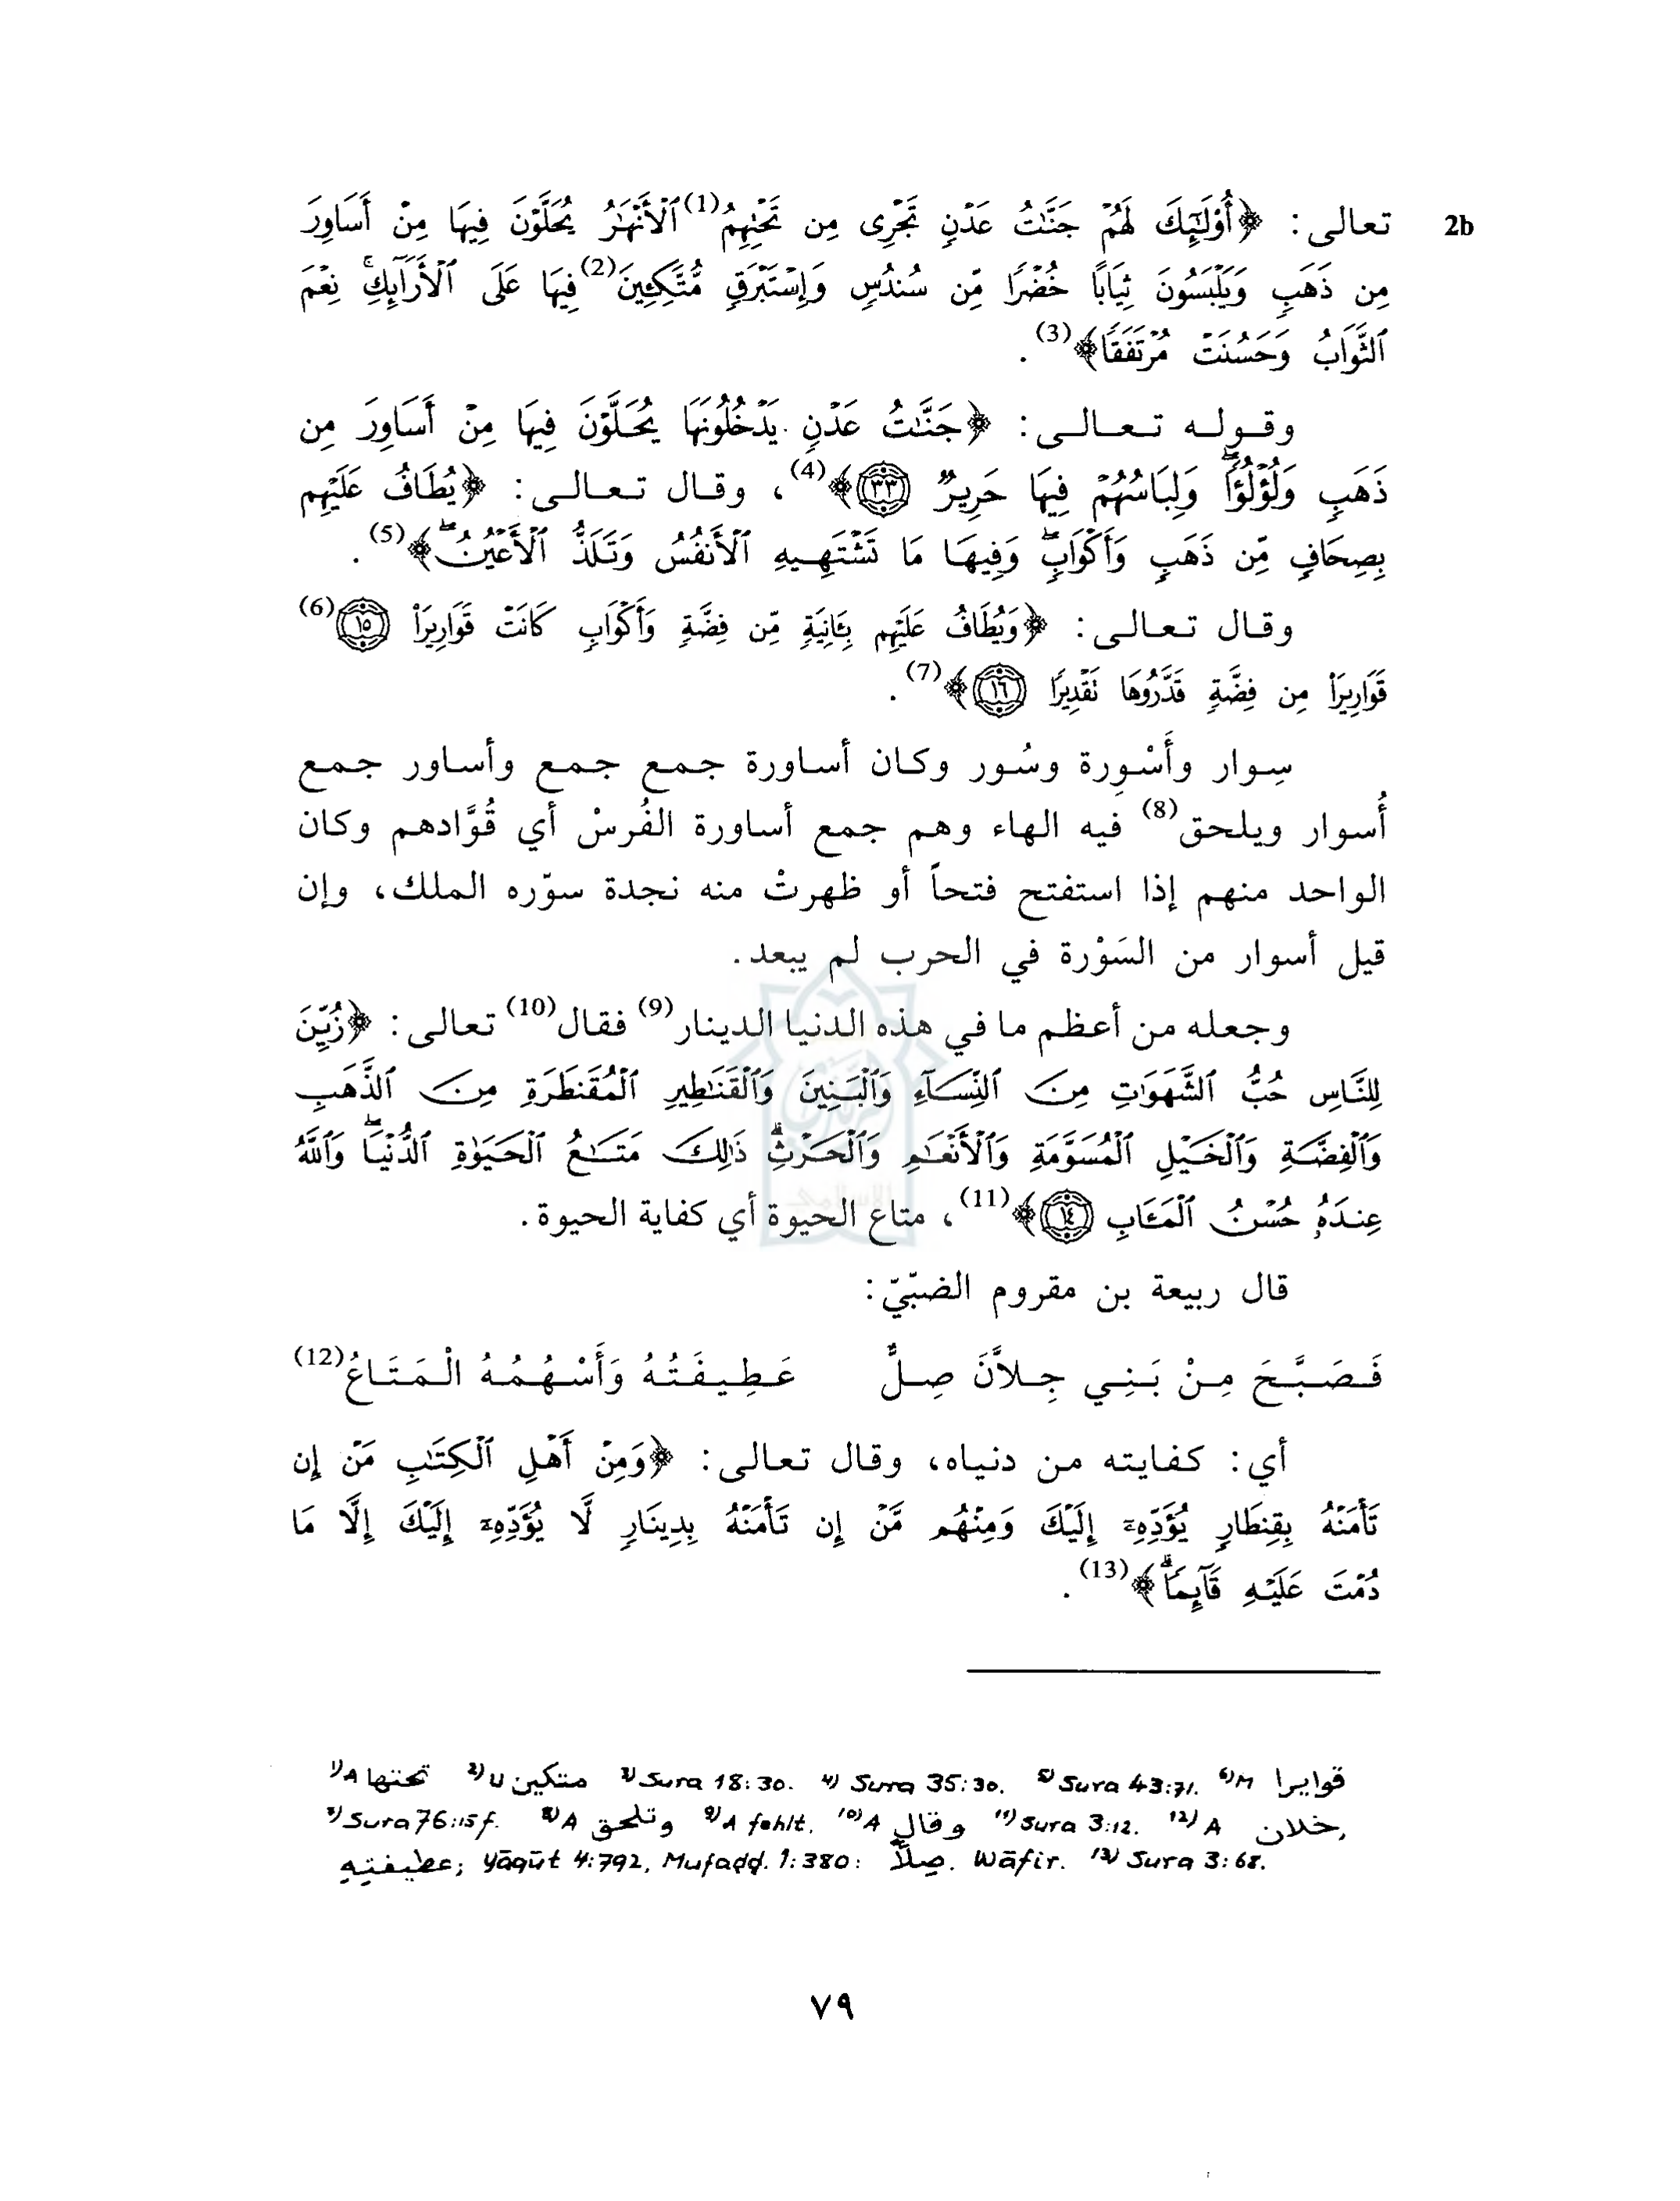 2b تعالى: ﴿أُوْلَٰٓئِكَ لَهُمْ جَنَّٰتُ عَدْنٍ تَجْرِى مِن تَحْتِهِمُ(1) ٱلْأَنْهَٰرُ يُحَلَّوْنَ فِيهَا مِنْ أَسَاوِرَ
مِن ذَهَبٍ وَيَلْبَسُونَ ثِيَابًا خُضْرًا مِّن سُندُسٍ وَإِسْتَبْرَقٍ مُّتَّكِـِٔينَ(2) فِيهَا عَلَى ٱلْأَرَآئِكِۚ نِعْمَ
ٱلثَّوَابُ وَحَسُنَتْ مُرْتَفَقًا﴾(3).
وقوله تعالى: ﴿جَنَّٰتُ عَدْنٍ يَدْخُلُونَهَا يُحَلَّوْنَ فِيهَا مِنْ أَسَاوِرَ مِن
ذَهَبٍ وَلُؤْلُؤًاۖ وَلِبَاسُهُمْ فِيهَا حَرِيرٌ ٣٣﴾(4)، وقال تعالى: ﴿يُطَافُ عَلَيْهِم
بِصِحَافٍ مِّن ذَهَبٍ وَأَكْوَابٍۖ وَفِيهَا مَا تَشْتَهِيهِ ٱلْأَنفُسُ وَتَلَذُّ ٱلْأَعْيُنُۖ﴾(5).
وقال تعالى: ﴿وَيُطَافُ عَلَيْهِم بِـَٔانِيَةٍ مِّن فِضَّةٍ وَأَكْوَابٍ كَانَتْ قَوَارِيرَا۠ ١٥(6)
قَوَارِيرَا۟ مِن فِضَّةٍ قَدَّرُوهَا تَقْدِيرًا ١٦﴾(7).
سِوار وأَسْوِرة وسُور وكان أساورة جمع جمع وأساور جمع
أُسوار ويلحق(8) فيه الهاء وهم جمع أساورة الفُرسْ أي قُوَّادهم وكان
الواحد منهم إذا استفتح فتحاً أو ظهرتْ منه نجدة سوّره الملك، وإن
قيل أسوار من السَوْرة في الحرب لم يبعد.
وجعله من أعظم ما في هذه الدنيا الدينار(9) فقال(10) تعالى: ﴿زُيِّنَ
لِلنَّاسِ حُبُّ ٱلشَّهَوَٰتِ مِنَ ٱلنِّسَآءِ وَٱلْبَنِينَ وَٱلْقَنَٰطِيرِ ٱلْمُقَنطَرَةِ مِنَ ٱلذَّهَبِ
وَٱلْفِضَّةِ وَٱلْخَيْلِ ٱلْمُسَوَّمَةِ وَٱلْأَنْعَٰمِ وَٱلْحَرْثِۗ ذَٰلِكَ مَتَٰعُ ٱلْحَيَوٰةِ ٱلدُّنْيَاۖ وَٱللَّهُ
عِندَهُۥ حُسْنُ ٱلْمَـَٔابِ ١٤﴾(11)، متاع الحيوة أي كفاية الحيوة.
قال ربيعة بن مقروم الضبّيّ:
فَصَبَّحَ مِنْ بَنِي جِلاَّنَ صِلٌّ عَطِيفَتُهُ وَأَسْهُمُهُ الْمَتَاعُ(12)
أي: كفايته من دنياه، وقال تعالى: ﴿وَمِنْ أَهْلِ ٱلْكِتَٰبِ مَنْ إِن
تَأْمَنْهُ بِقِنطَارٍ يُؤَدِّهِۦٓ إِلَيْكَ وَمِنْهُم مَّنْ إِن تَأْمَنْهُ بِدِينَارٍ لَّا يُؤَدِّهِۦٓ إِلَيْكَ إِلَّا مَا
دُمْتَ عَلَيْهِ قَآئِمًاۗ﴾(13).
1) A تحتها 2) U متكين 3) Sura 18:30. 4) Sura 35:30. 5) Sura 43:71. 6) M قوايرا
7) Sura 76:15f. 8) A وتلحق 9) A fehlt. 10) A وقال 11) Sura 3:12. 12) A خلان,
عطيفتهِ; Yāqūt 4:792, Mufaḍḍ. 1:380: صِلاًّ. Wāfir. 13) Sura 3:68.
٧٩